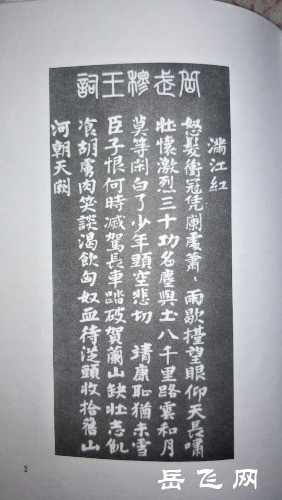 岳武穆王詞
滿江紅
怒髮衝冠凭闌處蕭、雨歇擡望眼仰天長嘯
壯懷激烈三十功名塵與土八千里路雲和月
莫等閑白了少年頭空悲切 靖康恥猶未雪
臣子恨何時滅駕長車踏破賀蘭山缺壯志飢
飡胡虜肉笑談渴飲匈奴血待從頭收拾舊山
河朝天闕
2
岳飞网